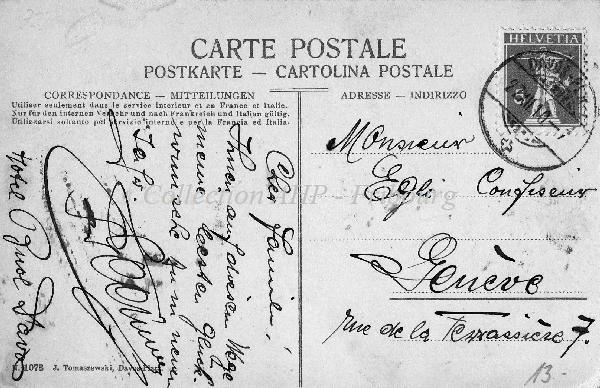 CARTE POSTALE
POSTKARTE — CARTOLINA POSTALE
CORRESPONDANCE — MITTEILUNGEN
Utiliser seulement dans le service intérieur et en France et Italie.
Nur für den internen Verkehr und nach Frankreich und Italien gültig.
Utilizzarsi soltanto pel servizio interno e per la Francia ed Italia.
ADRESSE — INDIRIZZO
HELVETIA
Monsieur
Egli Confiseur
Genève
rue de la Terrassière 7.
Ihnen auf diesem Wege
meine besten Glück-
wünsche zum neuen
Jahr.
Hotel Davos
1078 J. Tomaszewski, Davos-Platz
Collection
13-